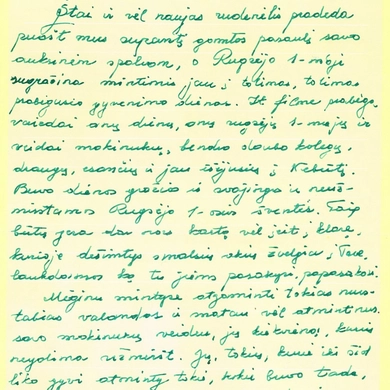 Štai ir vėl naujas rudenėlis pradeda
puošt mus supantį gamtos pasaulį savo
auksinėm spalvom, o Rugsėjo 1-moji
sugrąžina mintimis jau į tolimas, tolimas
prabėgusio gyvenimo dienas. It filme prabėga
vaizdai anų dienų, anų rugsėjų 1-mųjų ir
veidai mokinukų, bendro darbo kolegų,
draugų, esančių ir jau išėjusių į Nebūtį.
Buvo dienos gražios ir svajingos ir neuž-
mirštamos Rugsėjo 1-osios šventės. Taip
būtų gera dar nors kartą vėl įeit į klasę,
kurioje dešimtys smalsių akių žvelgia į Tave,
laukdamos ką tu joms pasakysi, papasakosi.
Mėginu mintyse atgaminti tokias nuo-
stabias valandas ir matau vėl atmintinus
savo mokinukų veidus, jų kiekvieno, kurių
neįdomu užmiršt. Jų, tokių, kurie iki šiol
liko gyvi atminty tokie, kokie buvo tada,